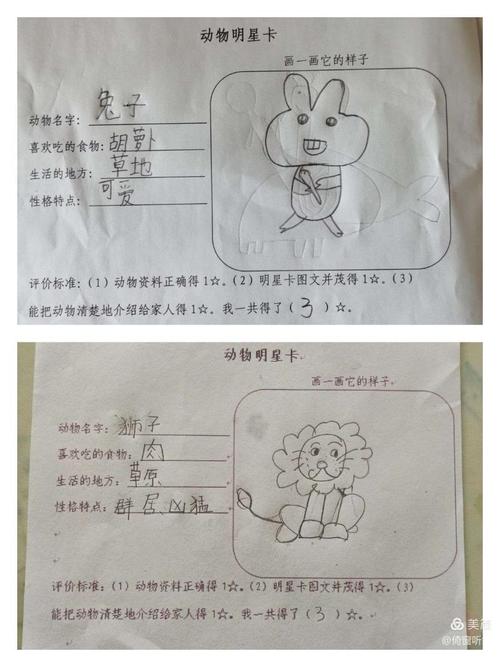 动物明星卡
画一画它的样子
动物名字：兔子
喜欢吃的食物：胡萝卜
生活的地方：草地
性格特点：可爱
评价标准：（1）动物资料正确得1☆。（2）明星卡图文并茂得1☆。（3）
能把动物清楚地介绍给家人得1☆。我一共得了（3）☆。
动物明星卡
画一画它的样子
动物名字：狮子
喜欢吃的食物：肉
生活的地方：草原
性格特点：群居、凶猛
评价标准：（1）动物资料正确得1☆。（2）明星卡图文并茂得1☆。（3）
能把动物清楚地介绍给家人得1☆。我一共得了（3）☆。
美篇
@倚窗听